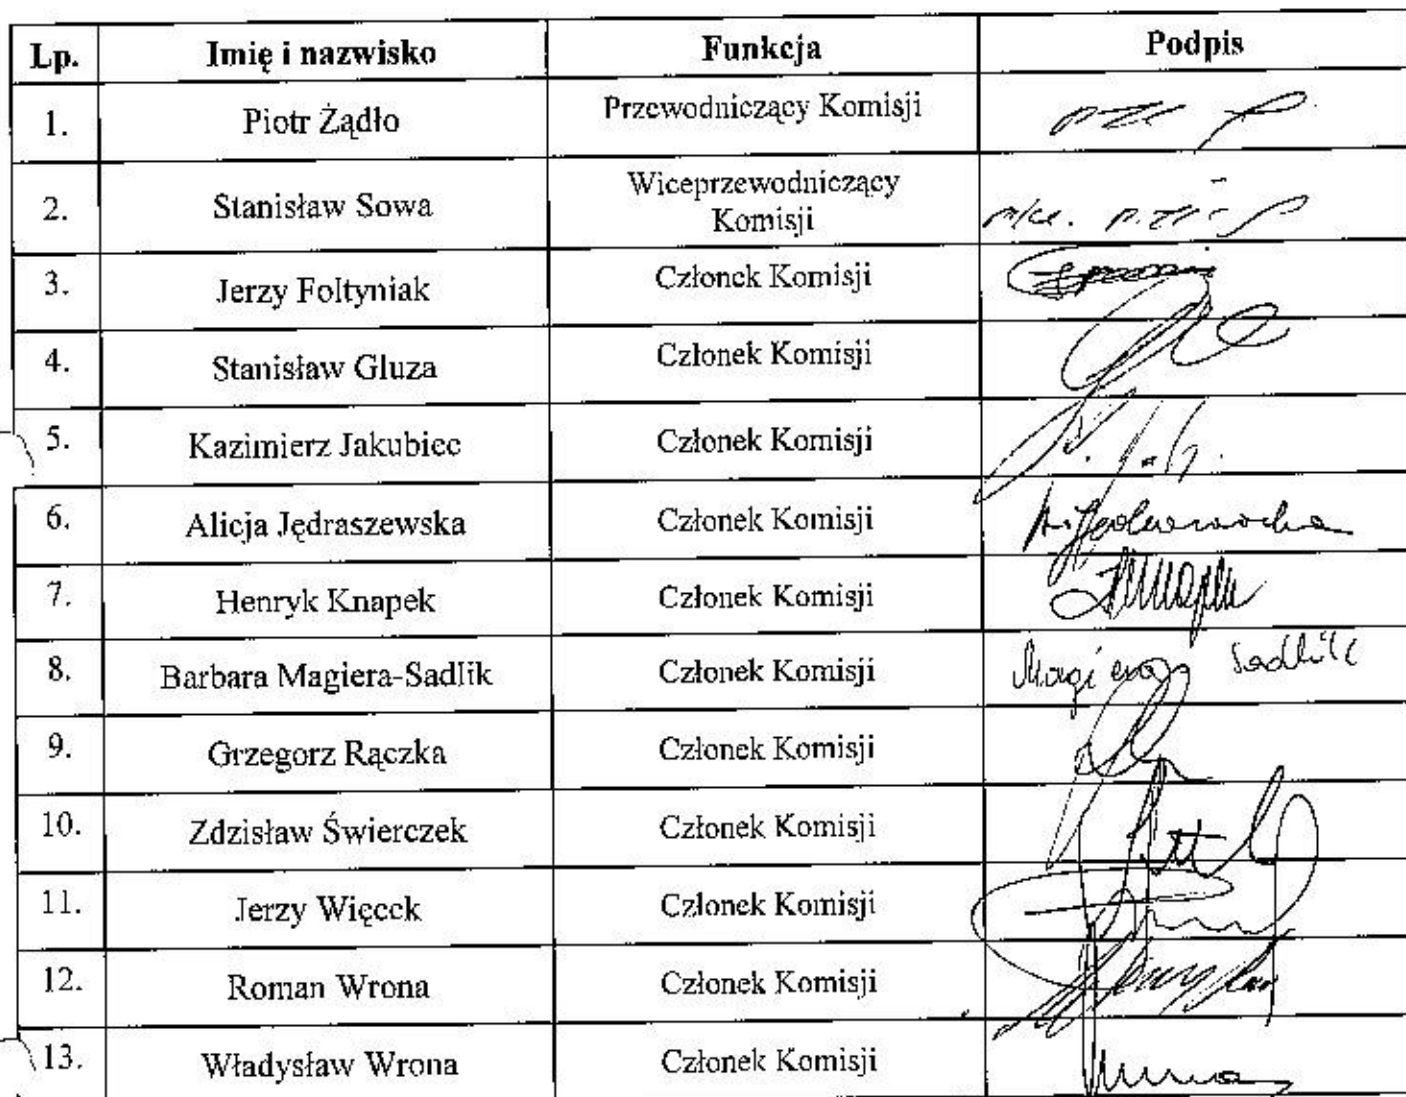 Lp. Imię i nazwisko Funkcja Podpis
1. Piotr Żądło Przewodniczący Komisji
2. Stanisław Sowa Wiceprzewodniczący
Komisji
3. Jerzy Foltyniak Członek Komisji
4. Stanisław Gluza Członek Komisji
5. Kazimierz Jakubiec Członek Komisji
6. Alicja Jędraszewska Członek Komisji
7. Henryk Knapek Członek Komisji
8. Barbara Magiera-Sadlik Członek Komisji Magiera Sadlik
9. Grzegorz Rączka Członek Komisji
10. Zdzisław Świerczek Członek Komisji
11. Jerzy Więcek Członek Komisji
12. Roman Wrona Członek Komisji
13. Władysław Wrona Członek Komisji